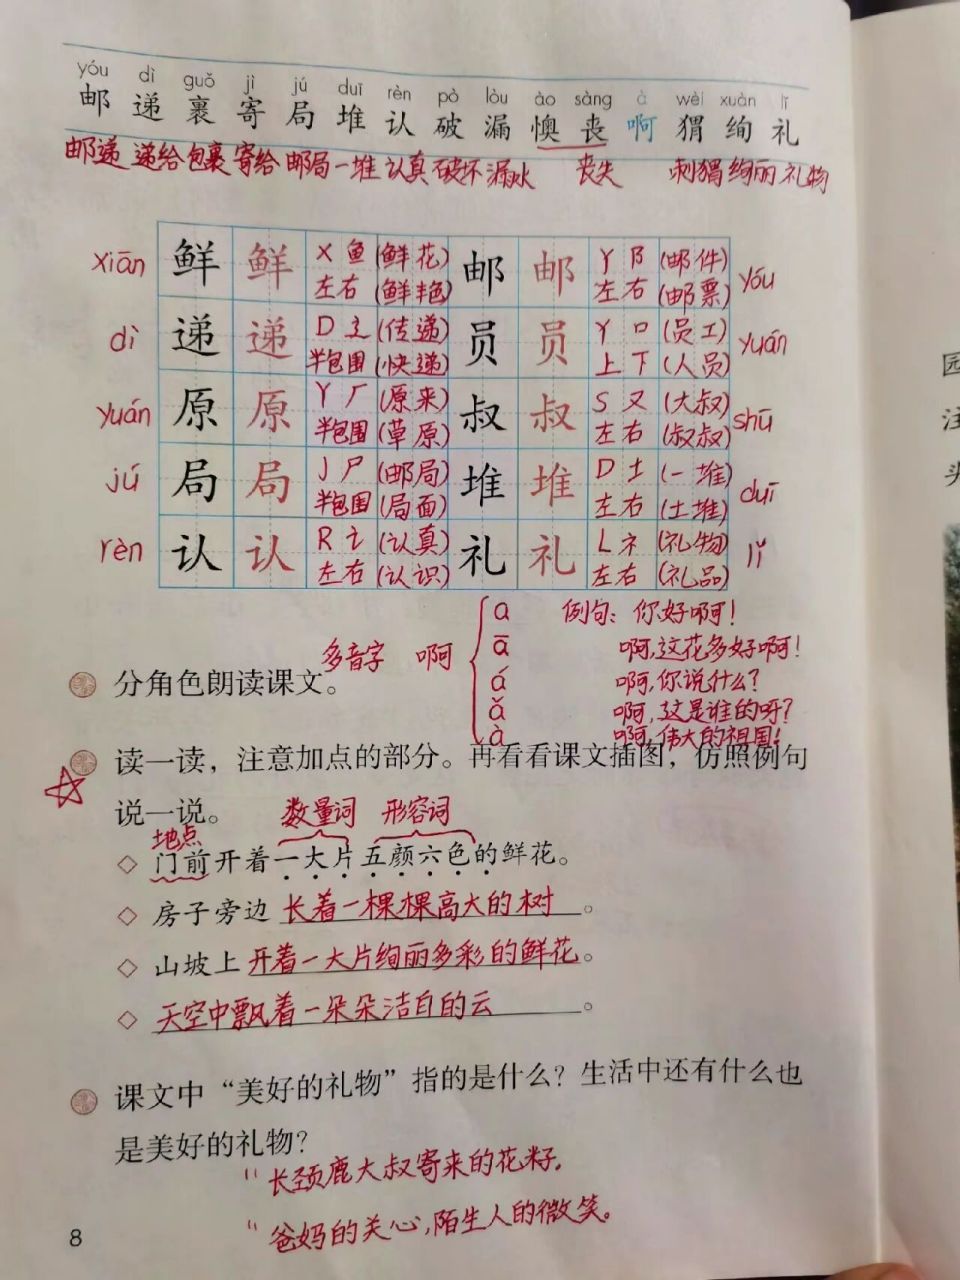 yóu dì guǒ jì jú duī rèn pò lòu ào sàng à wèi xuàn lǐ
邮 递 裹 寄 局 堆 认 破 漏 懊 丧 啊 猬 绚 礼
邮递 递给 包裹 寄给 邮局 一堆 认真 破坏 漏水 丧失 刺猬 绚丽 礼物
xiān 鲜 鲜 X 鱼 (鲜花) 邮 邮 Y 阝 (邮件) yóu
左右 (鲜艳) 左右 (邮票)
dì 递 递 D 辶 (传递) 员 员 Y 口 (员工) yuán
半包围 (快递) 上下 (人员)
yuán 原 原 Y 厂 (原来) 叔 叔 S 又 (大叔) shū
半包围 (草原) 左右 (叔叔)
jú 局 局 J 尸 (邮局) 堆 堆 D 土 (一堆) duī
半包围 (局面) 左右 (土堆)
rèn 认 认 R 讠 (认真) 礼 礼 L 礻 (礼物) lǐ
左右 (认识) 左右 (礼品)
a 例句：你好啊！
ā 啊，这花多好啊！
多音字 啊
á 啊，你说什么？
分角色朗读课文。
ǎ 啊，这是谁的呀？
à 啊，伟大的祖国！
读一读，注意加点的部分。再看看课文插图，仿照例句
说一说。
数量词 形容词
地点
◇ 门前开着一大片五颜六色的鲜花。
◇ 房子旁边 长着一棵棵高大的树。
◇ 山坡上 开着一大片绚丽多彩的鲜花。
◇ 天空中飘着一朵朵洁白的云。
课文中“美好的礼物”指的是什么？生活中还有什么也
是美好的礼物？
" 长颈鹿大叔寄来的花籽。
" 爸妈的关心，陌生人的微笑。
8
园
注
头